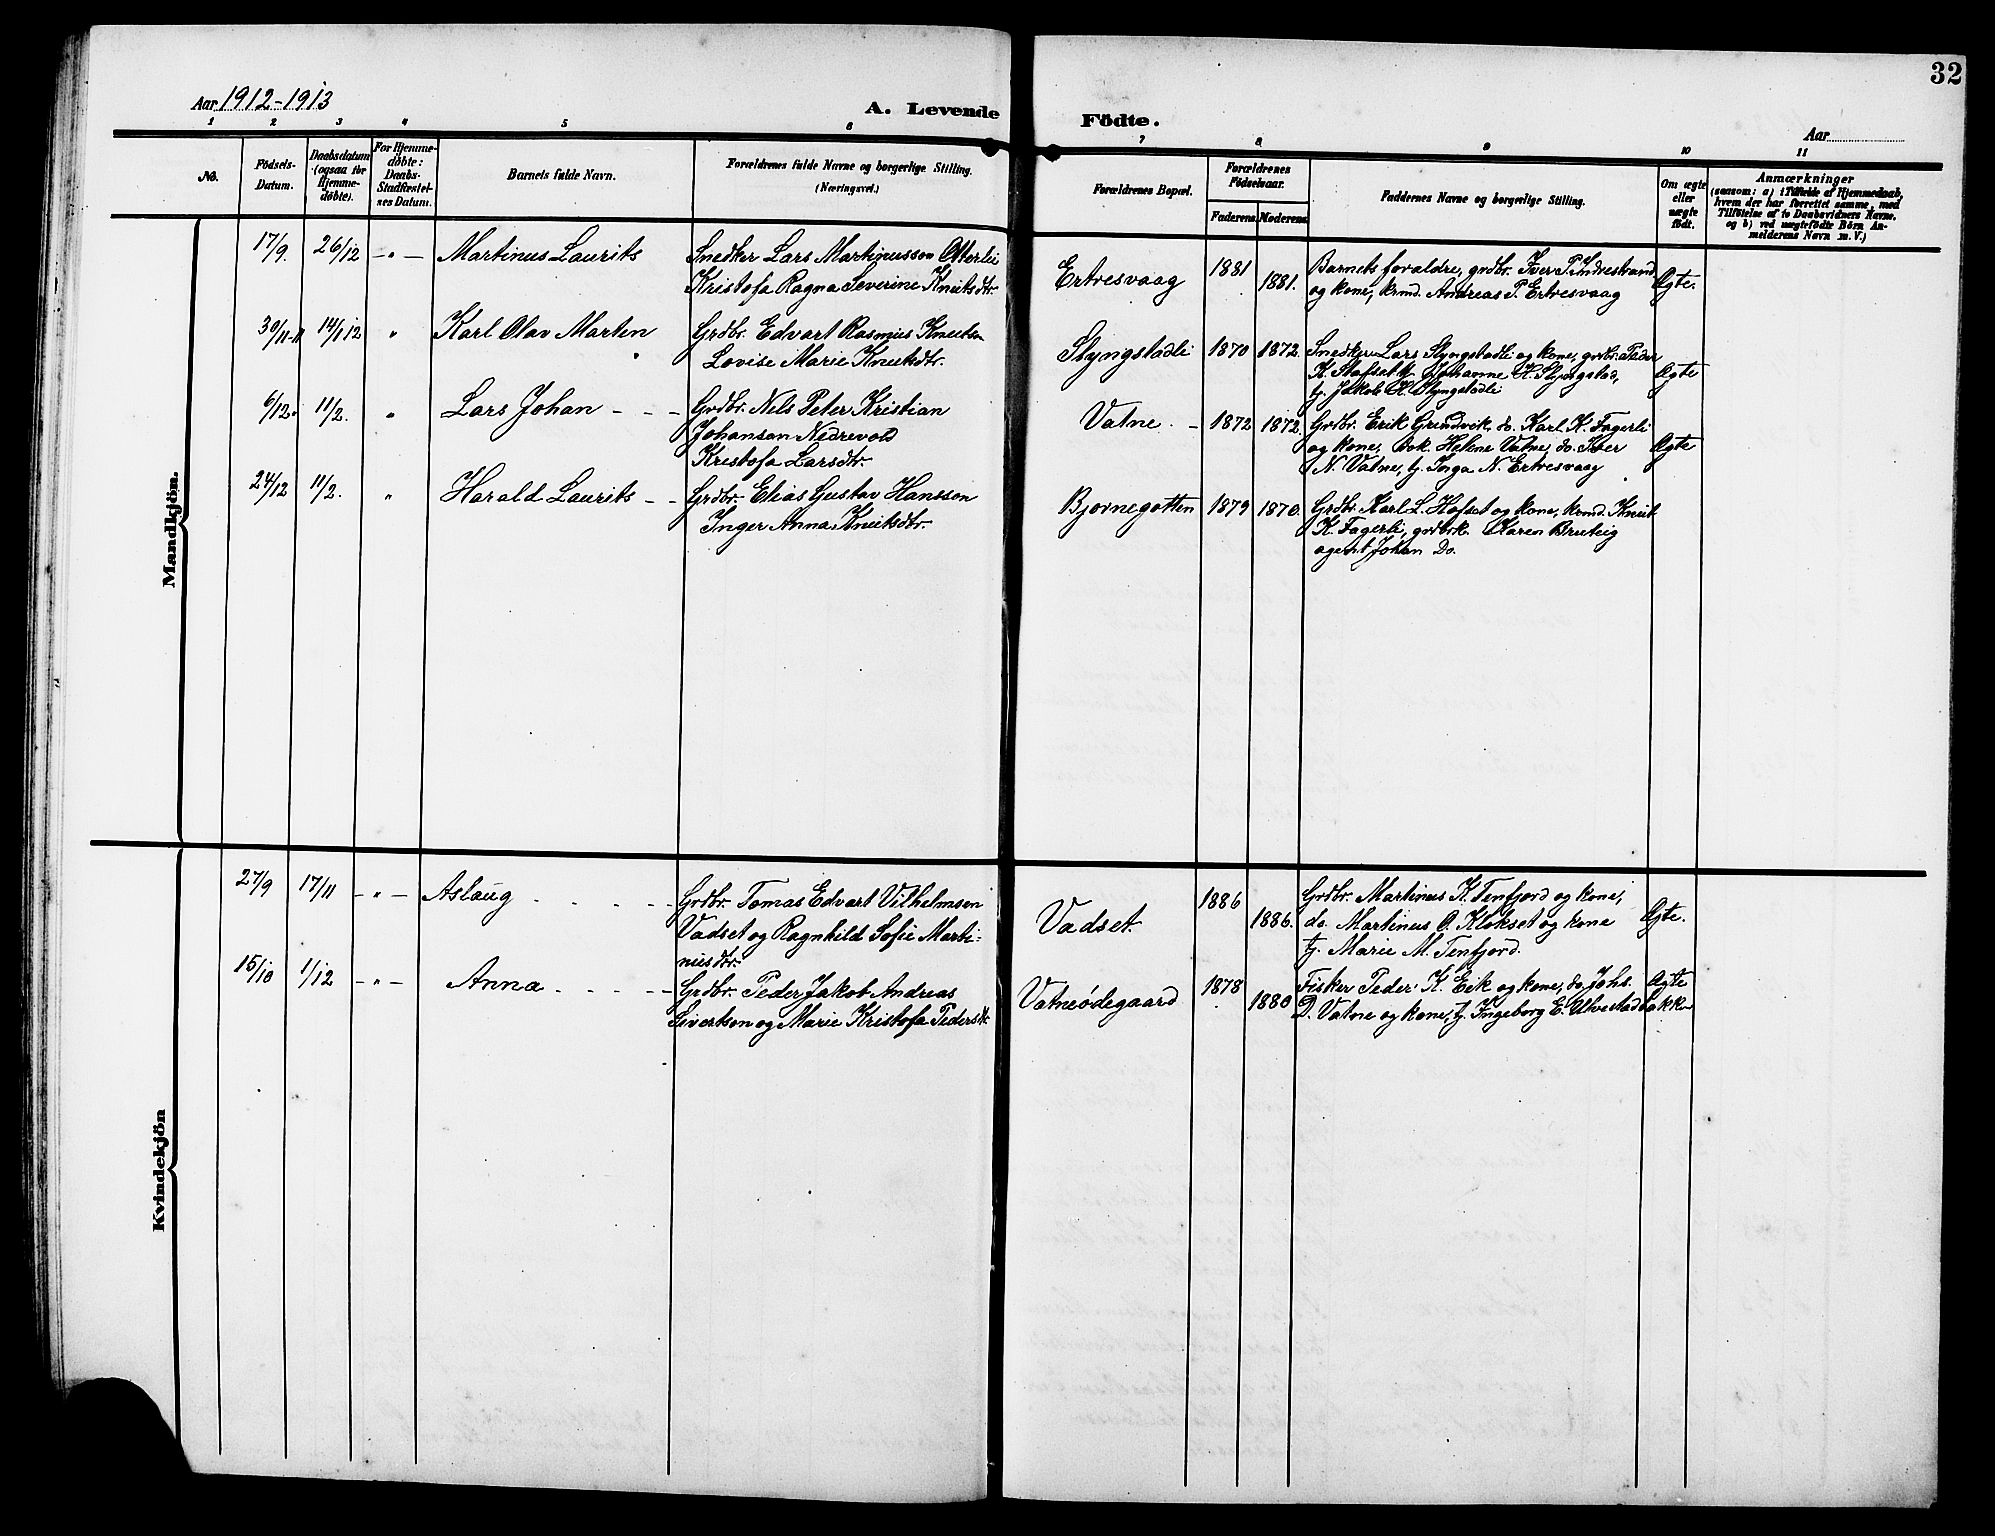 32
Aar 1912-1913
A. Levende Födte.
Aar
1 2 3 4 5 6 7 8 9 10 11
No.
Födsels-Datum.
Daabsdatum (ogsaa for Hjemmedøbte).
For Hjemmedøbte: Daabs-Stadfæstelsens Datum.
Barnets fulde Navn.
Forældrenes fulde Navne og borgerlige Stilling.
(Næringsvei.)
Forældrenes Bopæl.
Forældrenes Fødselsaar.
Faderens. Moderens.
Faddernes Navne og borgerlige Stilling.
Om ægte eller uægte født.
Anmærkninger
(saasom: a) i Tilfælde af Hjemmedaab,
hvem der har forrettet samme, med
Tilføielse af to Daabsvidners Navne.
og b) ved uægtefødte Børn An-
melderens Navn m. V.)
Mandkjön.
17/9. 26/12 -"- Martinus Laurits
Snedker Lars Martinusson Otterlei
Kristofa Ragna Severine Knutsdtr.
Ertresvaag 1881 1881.
Barnets foraldre, grdbr. Iver P. Indrestrand
og kone, krmd. Andreas P. Ertresvaag
Ægte.
30/11-11 14/1 12 " Karl Olav Marten
Grdbr. Edvart Rasmus Knutson
Lovise Marie Knutsdtr.
Slyngstadli 1870 1872.
Snedker Lars Slyngstadli og kone, grdbr. Peder
K. Slafsetk Johanne K. Slyngstad,
tj. Jakob K. Slyngstadli
Ægte
6/12. 11/2. " Lars Johan - - -
Grdbr. Nels Peter Kristian
Johanson Nedrevold
Kristofa Larsdtr.
Vatne. - 1872 1872.
Grdbr. Erik Grindvik, do. Karl K. Fagerli
og kone, Helene Vatne, do. Iver
N. Vatne, tj. Inga N. Ertresvaag
Ægte
24/12 11/2. " Harald Laurits - -
Grdbr. Elias Gustav Hansson
Inger Anna Knutsdtr.
Bjornegotten 1879 1870.
Grdbr. Karl L. Hofset og kone, krmd. Knut
K. Fagerli, grdbrk. Karen Bruteig
agent Johan Do.
Kvindekjön
27/9 17/11 -"- Aslaug - - - - -
Grdbr. Tomas Edvart Vilhelmsen
Vadset og Ragnhild Sofie Marti-
nusdtr.
Vadset. 1886 1886.
Grdbr. Martinus K. Tenfjord og kone,
do. Martinus O. Klokset og kone
tj. Marie M. Tenfjord.
Ægte.
15/10 1/12 -"- Anna - - - - -
Grdbr. Peder Jakob Andreas
Sivertson og Marie Kristofa Pedersdtr.
Vatneødegaard 1878 1880
Fisker Peder K. Eik og kone, do Johs.
D. Vatne og kone, tj. Ingeborg E. Ulvestadbakken
Ægte